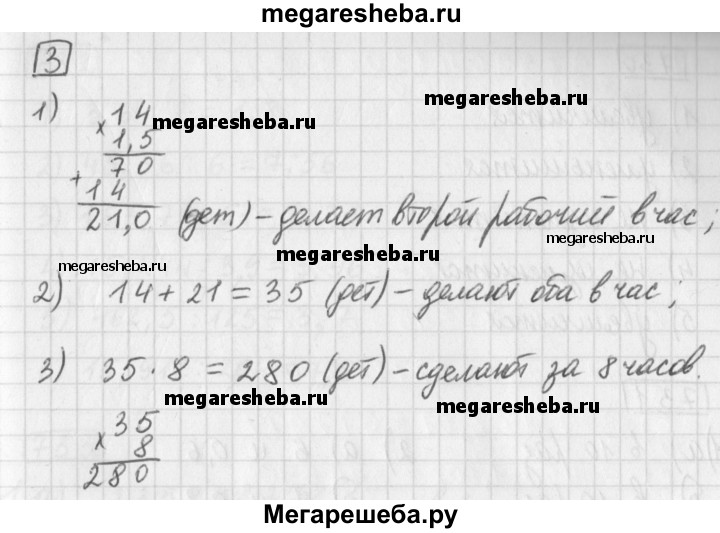 megaresheba.ru
3
1) × 14
megaresheba.ru
1,5
megaresheba.ru
70
+ 14
21,0 (дет) – делает второй рабочий в час;
megaresheba.ru
megaresheba.ru
megaresheba.ru
2) 14 + 21 = 35 (дет) – делают оба в час;
3) 35 · 8 = 280 (дет) – сделают за 8 часов.
megaresheba.ru
megaresheba.ru
× 35
8
280
Мегарешеба.ру